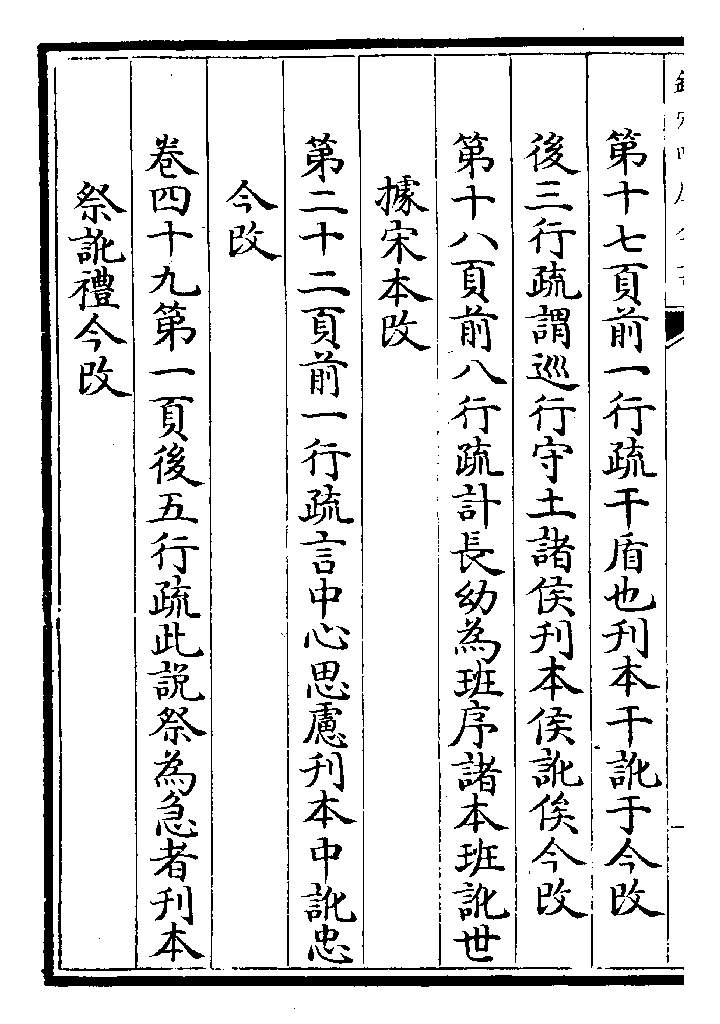 第十七頁前一行疏干盾也刊本干訛于今改
後三行疏謂巡行守土諸侯刊本侯訛俟今改
第十八頁前八行疏計長幼為班序諸本班訛世
據宋本改
第二十二頁前一行疏言中心思慮刊本中訛忠
今改
卷四十九第一頁後五行疏此説祭為急者刊本
祭訛禮今改